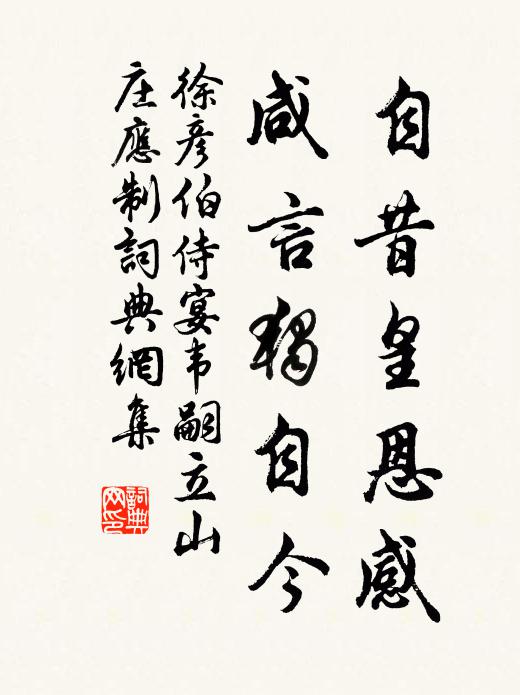 自昔皇恩感
咸言獨自今
徐彥伯侍宴韦嗣立山
庄應制詞典網集
詞典
网印